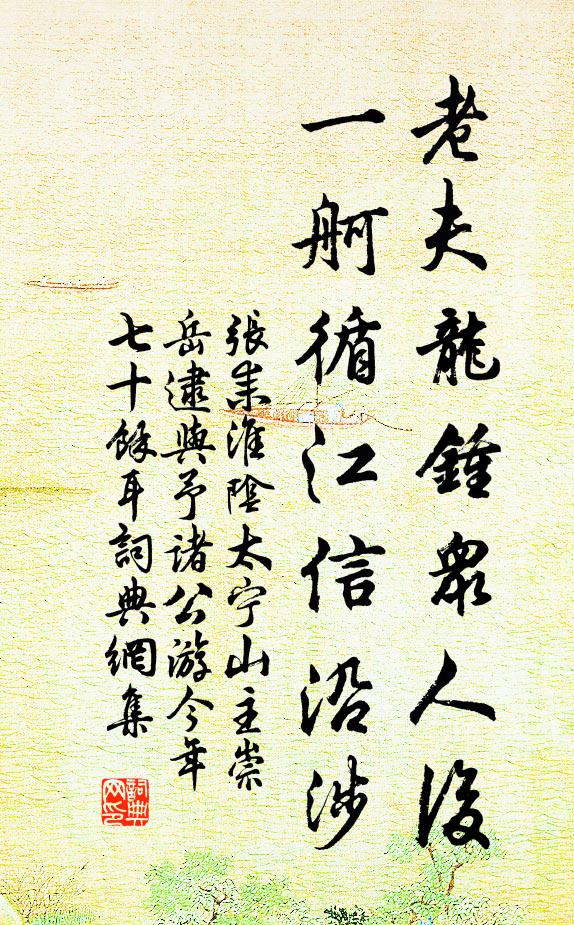 老夫龍鍾眾人後
一舸循江信沿涉
張耒淮陰太宁山主崇
岳逮與予諸公游今年
七十餘耳詞典網集
詞典网印